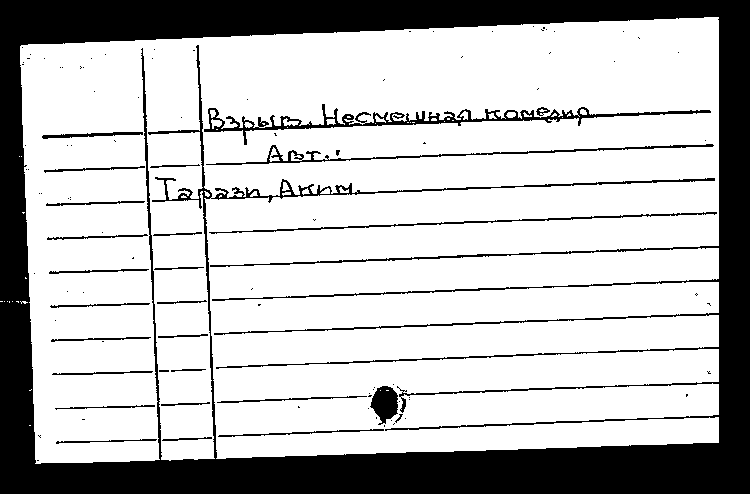 Взрыв. Несмешная комедия
Авт.:
Тарази, Аким.